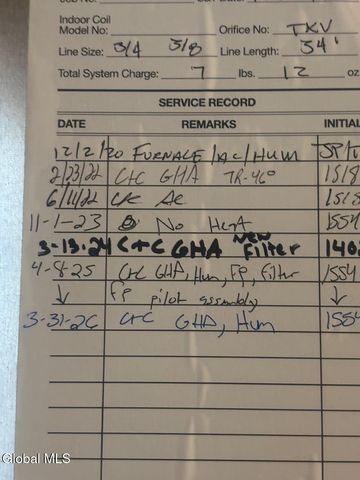 Indoor Coil
Model No: Orifice No: TXV
Line Size: 3/4 3/8 Line Length: 34'
Total System Charge: 7 lbs. 12 oz
SERVICE RECORD
DATE REMARKS INITIAL
12/2/20 FURNACE/AC/HUM
2/23/22 C+C GHA TR-46° 1518
6/11/22 AC 1518
11-1-23 No Heat 1554
3-13-24 C+C GHA NEW Filter 1402
4-8-25 C+C GHA, Hum, Fp, filter 1554
↓ Fp pilot assembly ↓
3-31-26 C+C GHA, Hum 1554
Global MLS